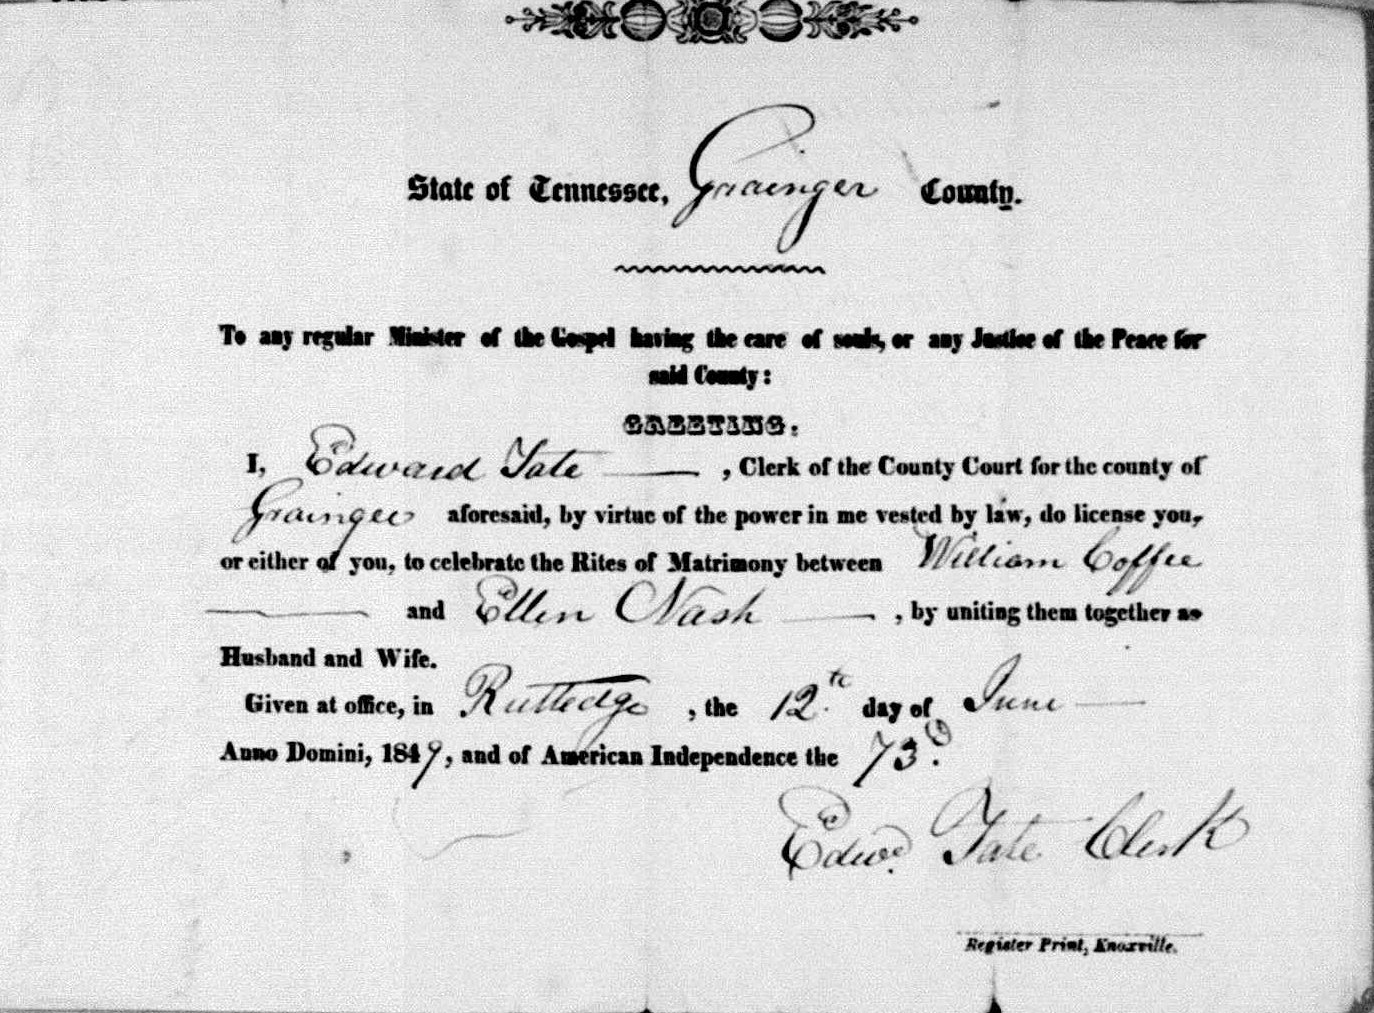 State of Tennessee, Grainger County.
To any regular Minister of the Gospel having the care of souls, or any Justice of the Peace for
said County:
GREETING.
I, Edward Tate , Clerk of the County Court for the county of
Grainger aforesaid, by virtue of the power in me vested by law, do license you,
or either of you, to celebrate the Rites of Matrimony between William Coffee
and Ellen Nash , by uniting them together as
Husband and Wife.
Given at office, in Rutledge , the 12th day of June
Anno Domini, 1849, and of American Independence the 73d.
Edwd. Tate Clerk
Register Print, Knoxville.